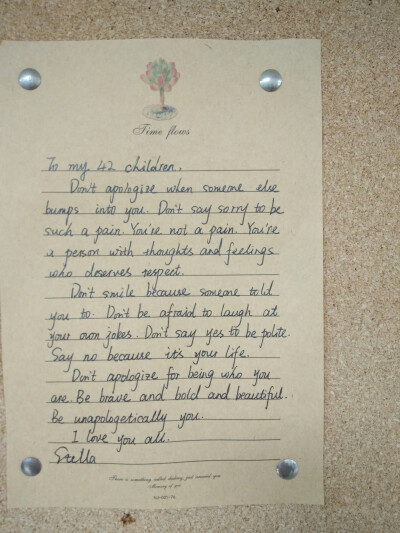 Time flows
To my 42 children.
Don't apologize when someone else
bumps into you. Don't say sorry to be
such a pain. You're not a pain. You're
a person with thoughts and feelings
who deserves respect.
Don't smile because someone told
you to. Don't be afraid to laugh at
your own jobes. Don't say yes to be polite.
Say no because it's your life.
Don't apologize for being who you
are. Be brave and bold and beautiful.
Be unapologetically you.
I love you all.
Stella
There is something called destiny just around you
Memory of you